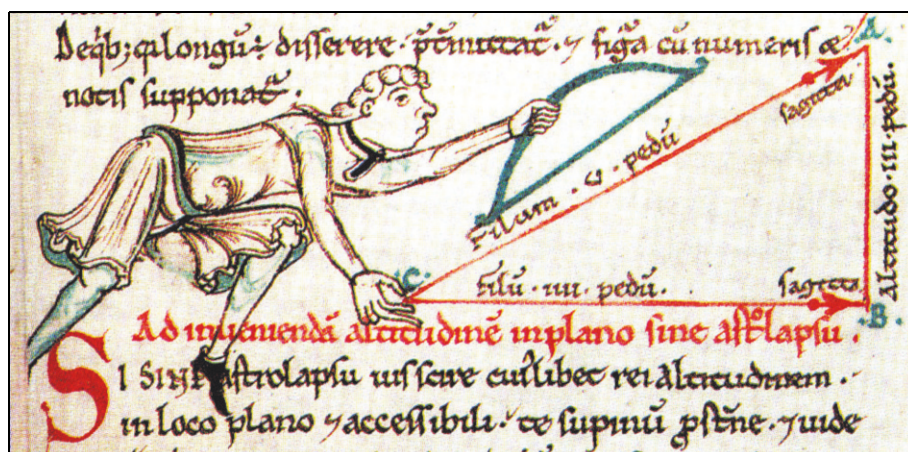 Deq̄b; q̄ longū ē disserere · p̄t̄mittat̄ · ⁊ figa cū numeris &
notis supponat̄ ·
A
sagitta
Filum · v · pedū
Altitudo · iii · pedū ·
· C ·
filū · iiii · pedū ·
sagitta
· B ·
Ad inueniendā altitudinē in plano sine astrolapsu ·
SI SINE astrolapsu uis scire cuiꝰlibet rei altitudinem ·
in loco plano ⁊ accessibili · te supinū p̄st̄ne · ⁊ uide